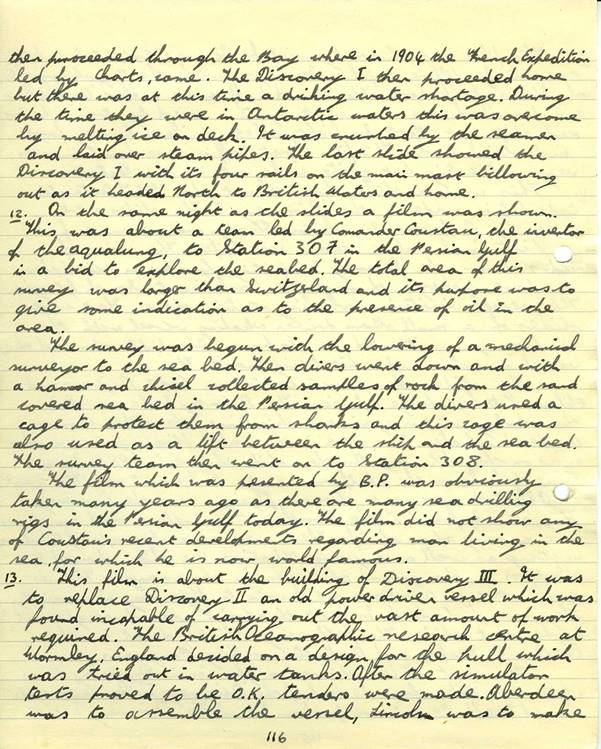 then proceeded through the Bay where in 1904 the French Expedition
led by Charts, came. The Discovery I then proceeded home
but there was at this time a drinking water shortage. During
the time they were in Antarctic waters this was overcome
by melting ice on deck. It was crushed by the seamen
and laid over steam pipes. The last slide showed the
Discovery I with its four sails on the main mast billowing
out as it headed North to British Waters and home.
12. On the same night as the slides a film was shown.
This was about a team led by Comander Coustau, the inventor
of the aqualung, to Station 307 in the Persian Gulf
in a bid to explore the seabed. The total area of this
survey was larger than Switzerland and its purpose was to
give some indication as to the presence of oil in the
area.
The survey was begun with the lowering of a mechanical
surveyor to the sea bed. Then divers went down and with
a hamor and chisel collected samples of rock from the sand
covered sea bed in the Persian Gulf. The divers used a
cage to protect them from sharks and this cage was
also used as a lift between the ship and the sea bed.
The survey team then went on to Station 308.
The film which was pesented by B.P. was obviously
taken many years ago as there are many sea drilling
rigs in the Persian Gulf today. The film did not show any
of Coustau's recent developments regarding man living in the
sea, for which he is now world famous.
13. This film is about the building of Discovery III. It was
to replace Discovery II an old power driven vessel which was
found incapable of carrying out the vast amount of work
required. The British Oceanographic research centre at
Wormley, England decided on a design for the hull which
was tried out in water tanks. After the simulator
tests proved to be O.K, tenders were made. Aberdeen
was to assemble the vessel, Lincoln was to make
116